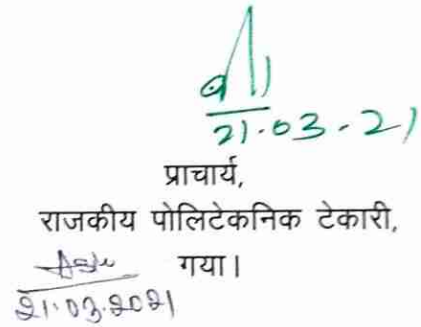 21.03.21
प्राचार्य,
राजकीय पोलिटेकनिक टेकारी,
गया।
21.03.2021